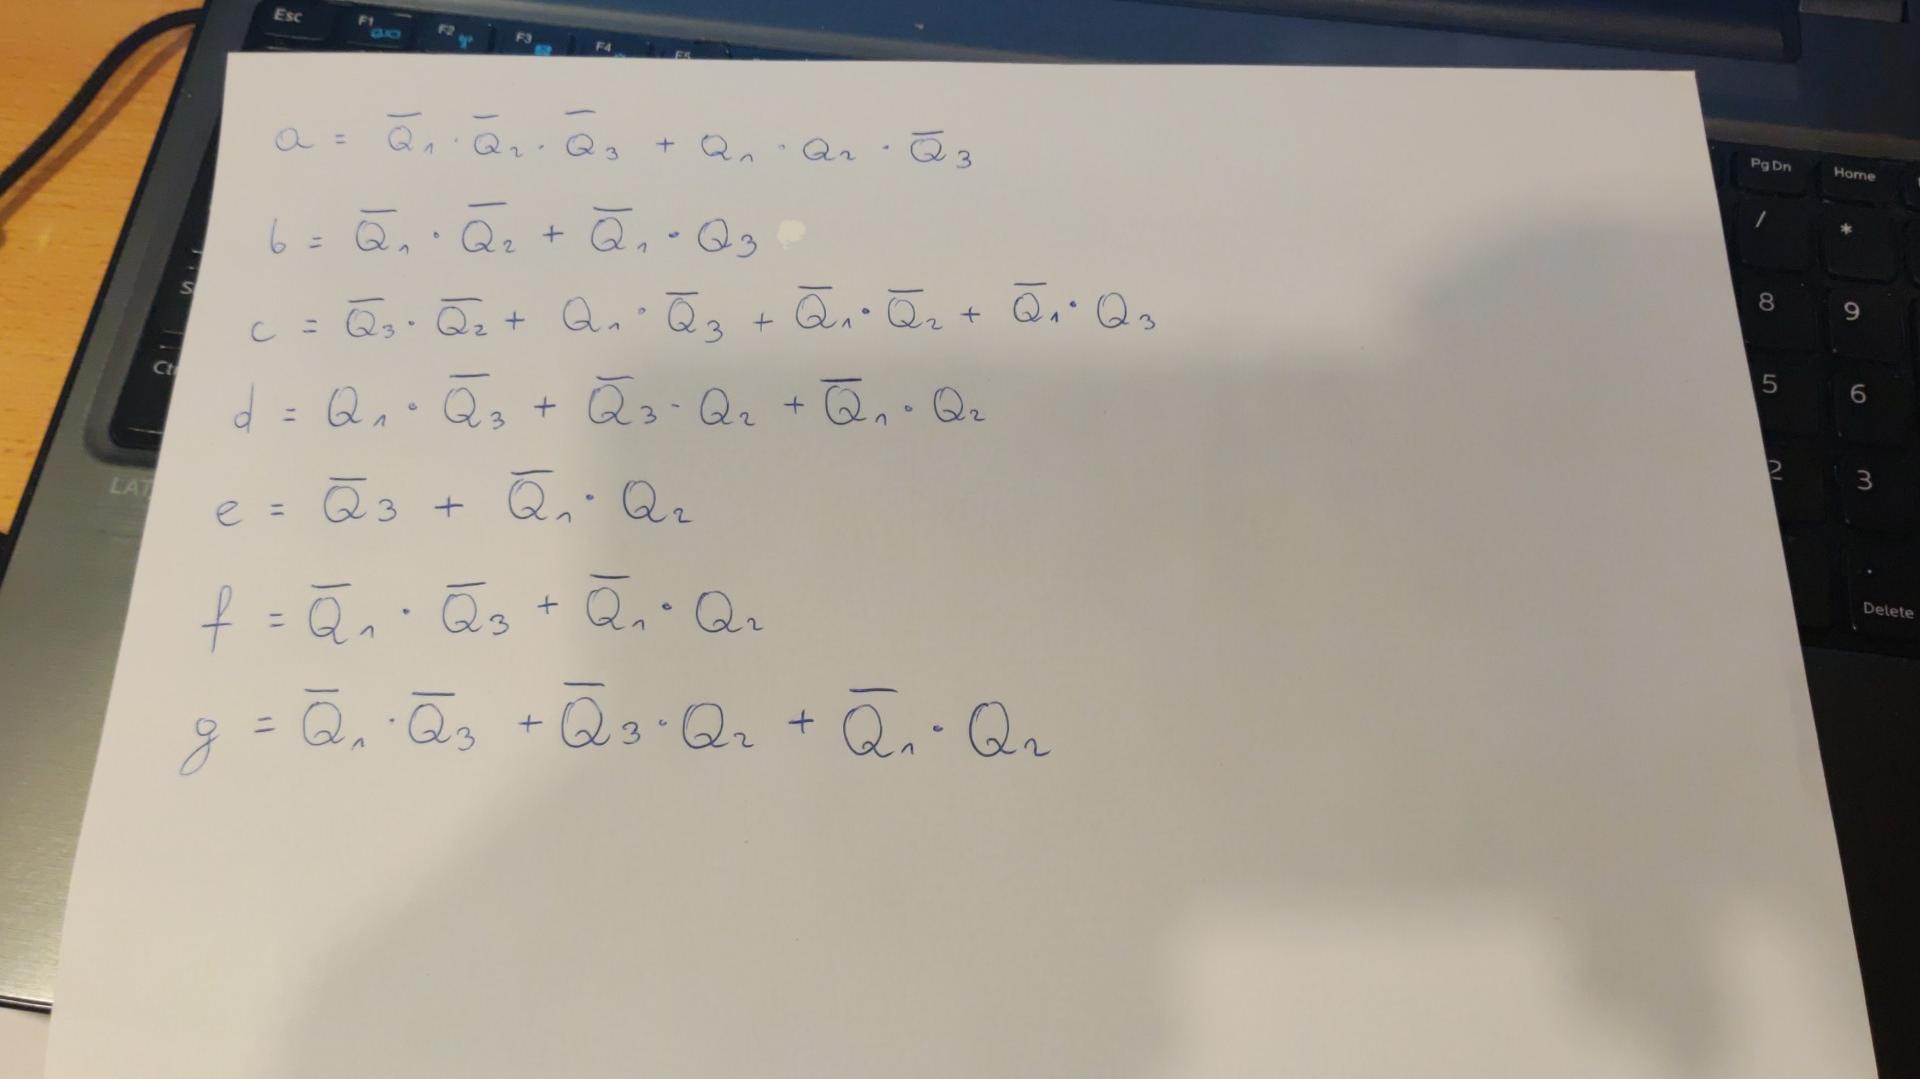 Esc F1 F2 F3 F4 F5
a = Q̅₁ · Q̅₂ · Q̅₃ + Q₁ · Q₂ · Q̅₃
b = Q̅₁ · Q̅₂ + Q̅₁ · Q₃
c = Q̅₃ · Q̅₂ + Q₁ · Q̅₃ + Q̅₁ · Q̅₂ + Q̅₁ · Q₃
d = Q₁ · Q̅₃ + Q̅₃ · Q₂ + Q̅₁ · Q₂
e = Q̅₃ + Q̅₁ · Q₂
f = Q̅₁ · Q̅₃ + Q̅₁ · Q₂
g = Q̅₁ · Q̅₃ + Q̅₃ · Q₂ + Q̅₁ · Q₂
Pg Dn Home
/ *
8 9
5 6
2 3
.
Delete